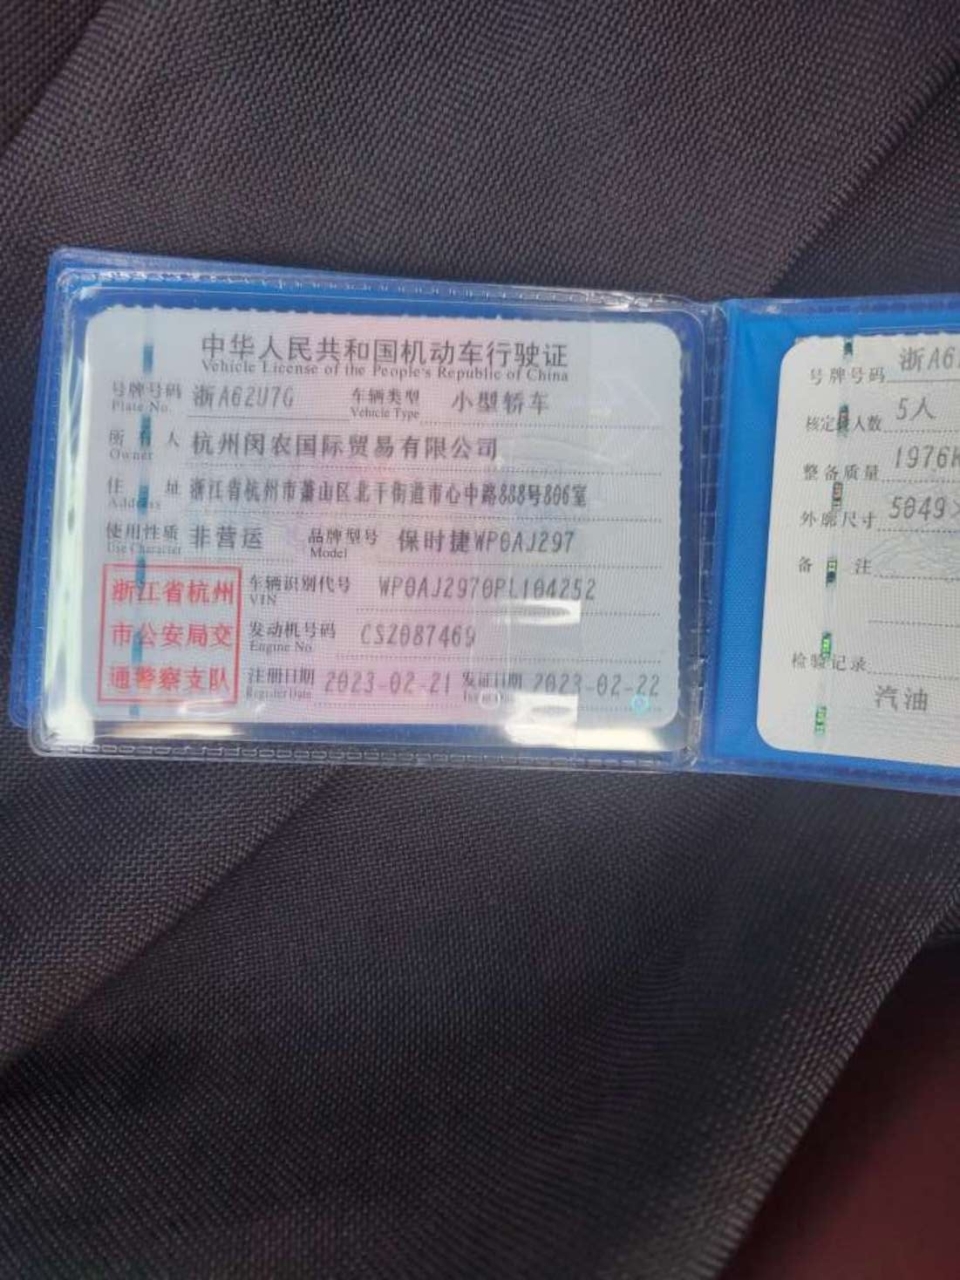 中华人民共和国机动车行驶证
Vehicle License of the People's Republic of China
号牌号码 浙A62U7G 车辆类型 小型轿车
Plate No. Vehicle Type
所有人 杭州闵农国际贸易有限公司
Owner
住址 浙江省杭州市萧山区北干街道市心中路888号806室
Address
使用性质 非营运 品牌型号 保时捷WP0AJ297
Use Character Model
浙江省杭州
市公安局交
通警察支队
车辆识别代号 WP0AJ2970PL104252
VIN
发动机号码 CSZ087469
Engine No.
注册日期 2023-02-21 发证日期 2023-02-22
Register Date Issue Date
号牌号码 浙A6
核定载人数 5人
整备质量 1976K
外廓尺寸 5049×
备注
检验记录
汽油